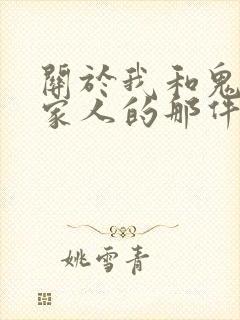 關於我和鬼
家人的那件
姚雪青